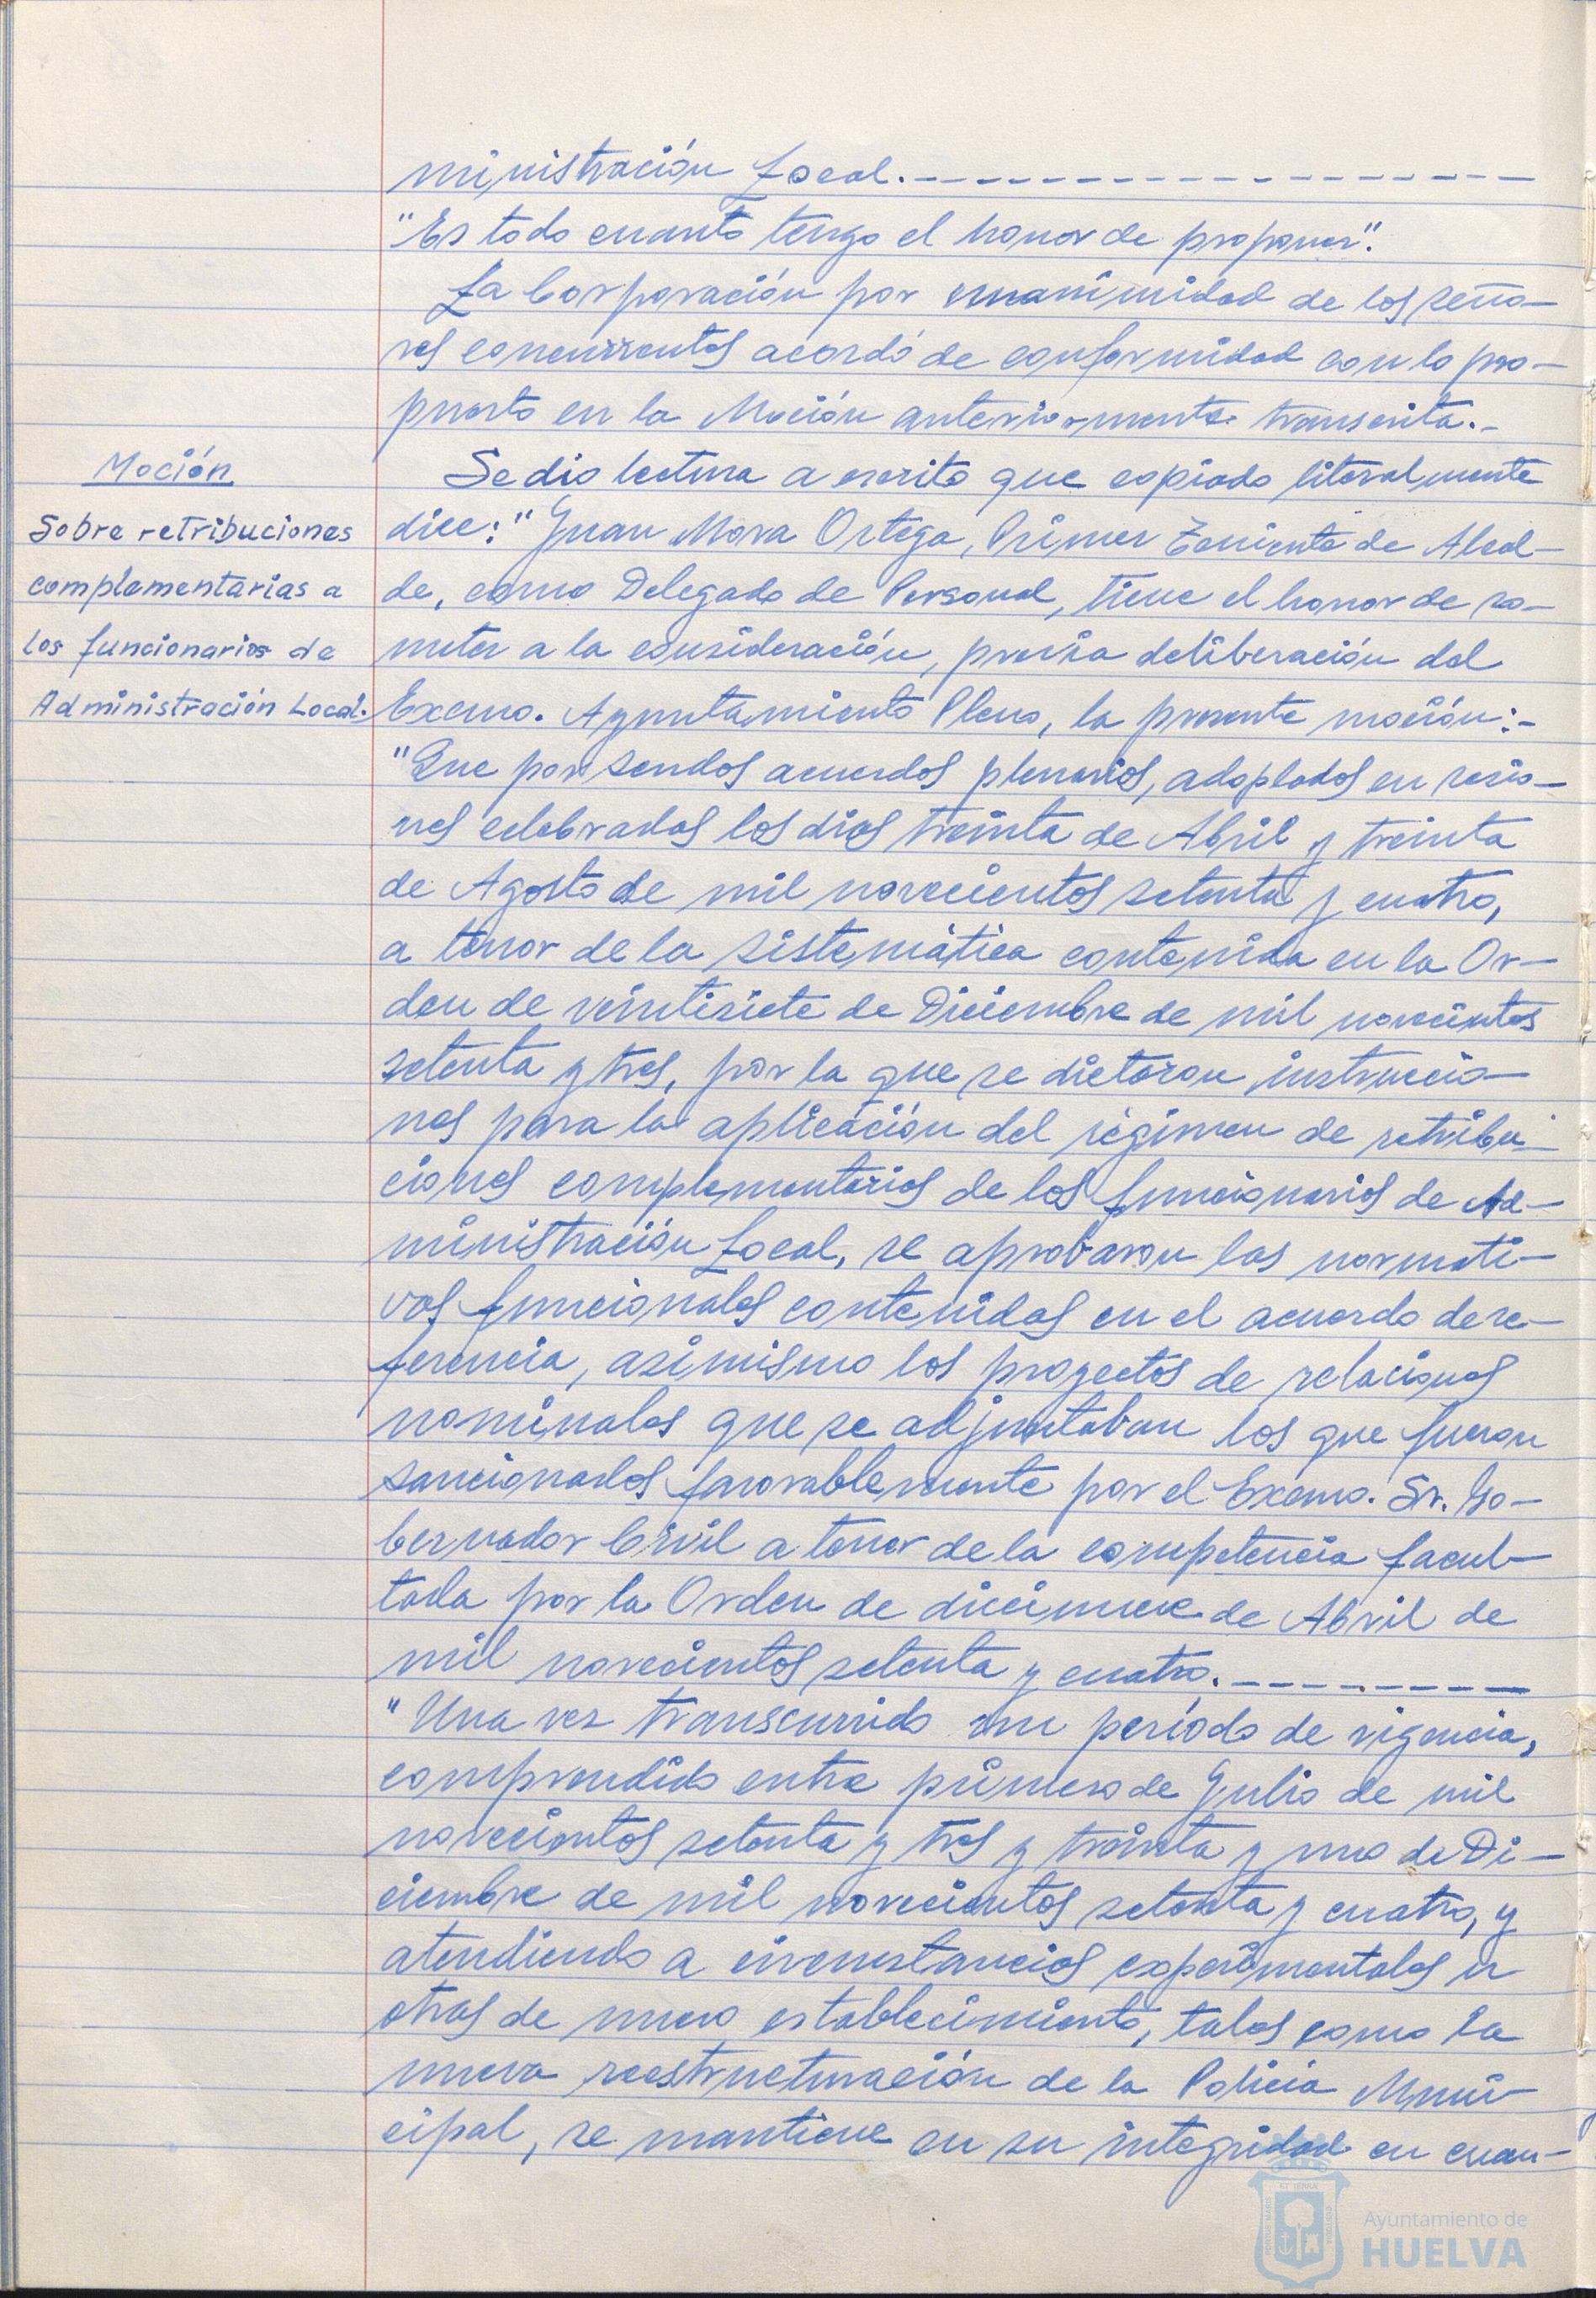 ministración Local.-
"Es todo cuanto tengo el honor de proponer".
La Corporación por unanimidad de los seño-
res concurrentes acordó de conformidad con lo pro-
puesto en la Moción anteriormente transcrita.-
Moción
Sobre retribuciones
complementarias a
los funcionarios de
Administración Local.
Se dio lectura a escrito que copiado literalmente
dice: "Juan Mora Ortega, Primer Teniente de Alcal-
de, como Delegado de Personal, tiene el honor de so-
meter a la consideración, previa deliberación del
Excmo. Ayuntamiento Pleno, la presente moción:-
"Que por sendos acuerdos plenarios, adoptados en sesio-
nes celebradas los días treinta de Abril y treinta
de Agosto de mil novecientos setenta y cuatro,
a tenor de la sistemática contenida en la Or-
den de veintisiete de Diciembre de mil novecientos
setenta y tres, por la que se dictaron instruccio-
nes para la aplicación del régimen de retribu-
ciones complementarias de los funcionarios de Ad-
ministración Local, se aprobaron las normati-
vas funcionales contenidas en el acuerdo de re-
ferencia, asimismo los proyectos de relaciones
nominales que se adjuntaban los que fueron
sancionados favorablemente por el Excmo. Sr. Go-
bernador Civil a tenor de la competencia facul-
tada por la Orden de diecinueve de Abril de
mil novecientos setenta y cuatro.-
"Una vez transcurrido un período de vigencia,
comprendido entre primero de Julio de mil
novecientos setenta y tres y treinta y uno de Di-
ciembre de mil novecientos setenta y cuatro, y
atendiendo a circunstancias experimentales u
otras de nuevo establecimiento, tales como la
nueva reestructuración de la Policía Muni-
cipal, se mantiene en su integridad en cuan-
Ayuntamiento de
HUELVA